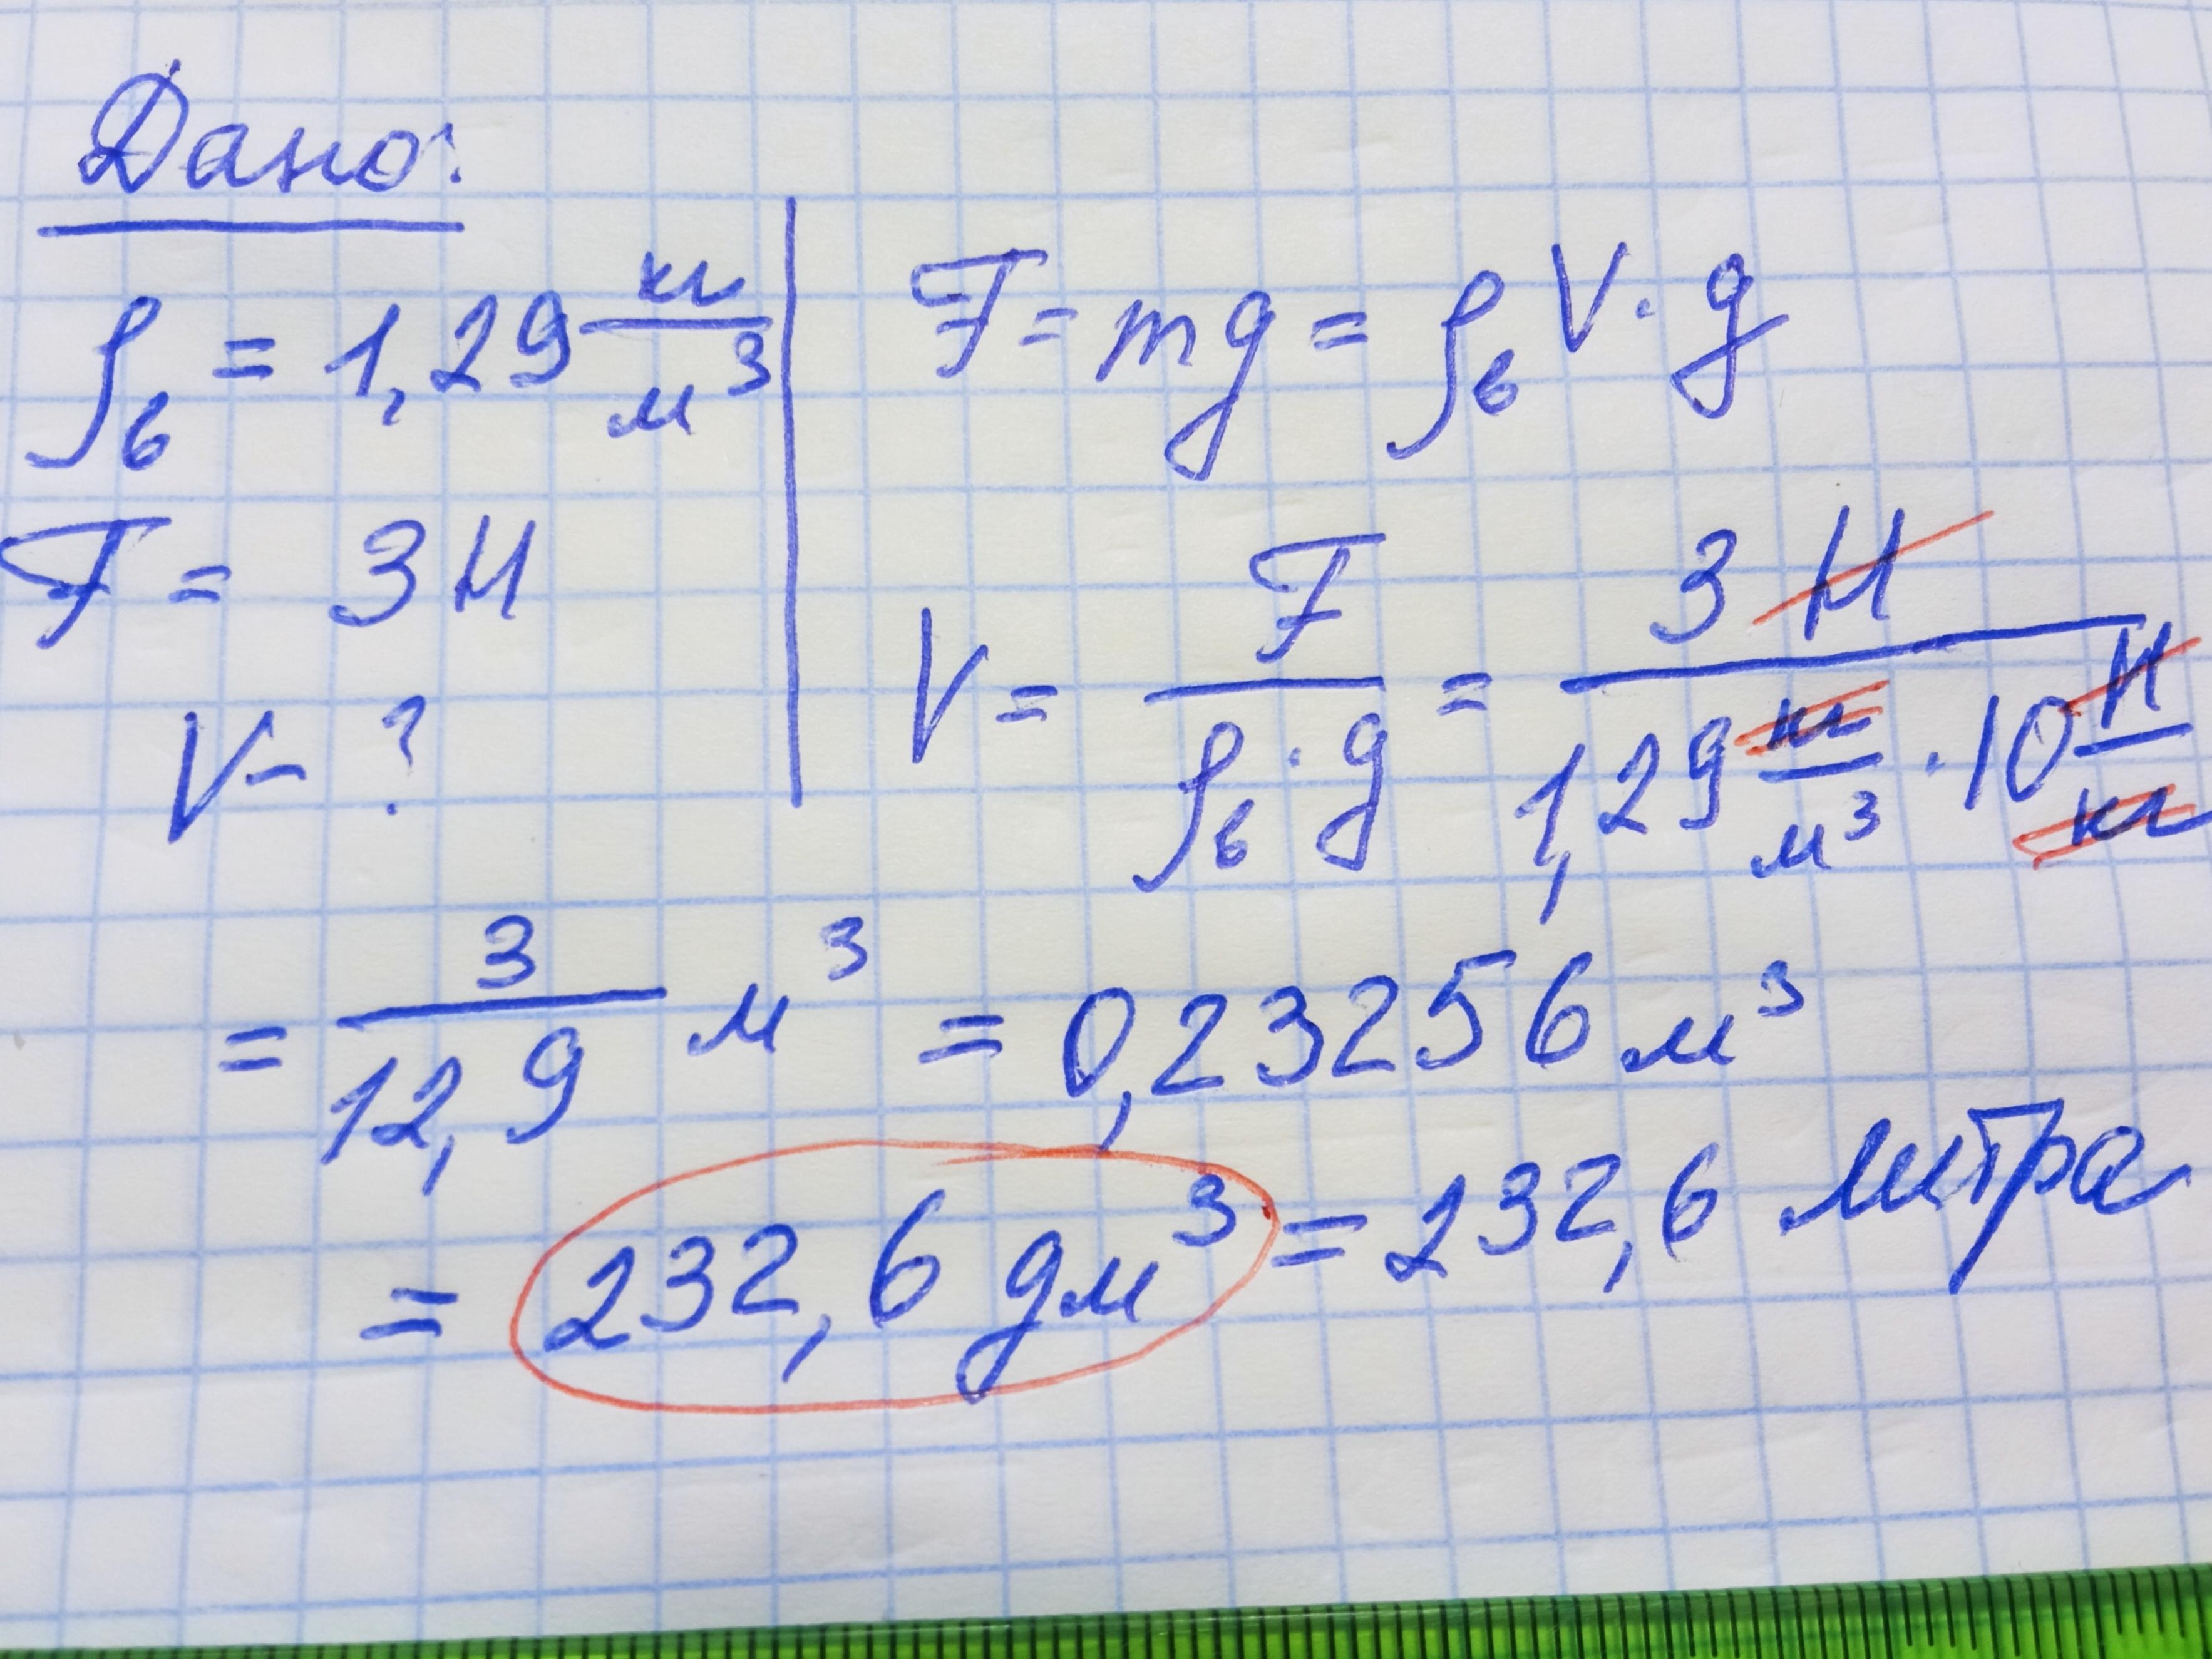 Дано:
ρв = 1,29 кг/м³
F = 3 Н
V - ?
F = mg = ρв V · g
V = F / (ρв · g) = 3 Н / (1,29 кг/м³ · 10 Н/кг)
= 3/12,9 м³ = 0,23256 м³
= 232,6 дм³ = 232,6 литра